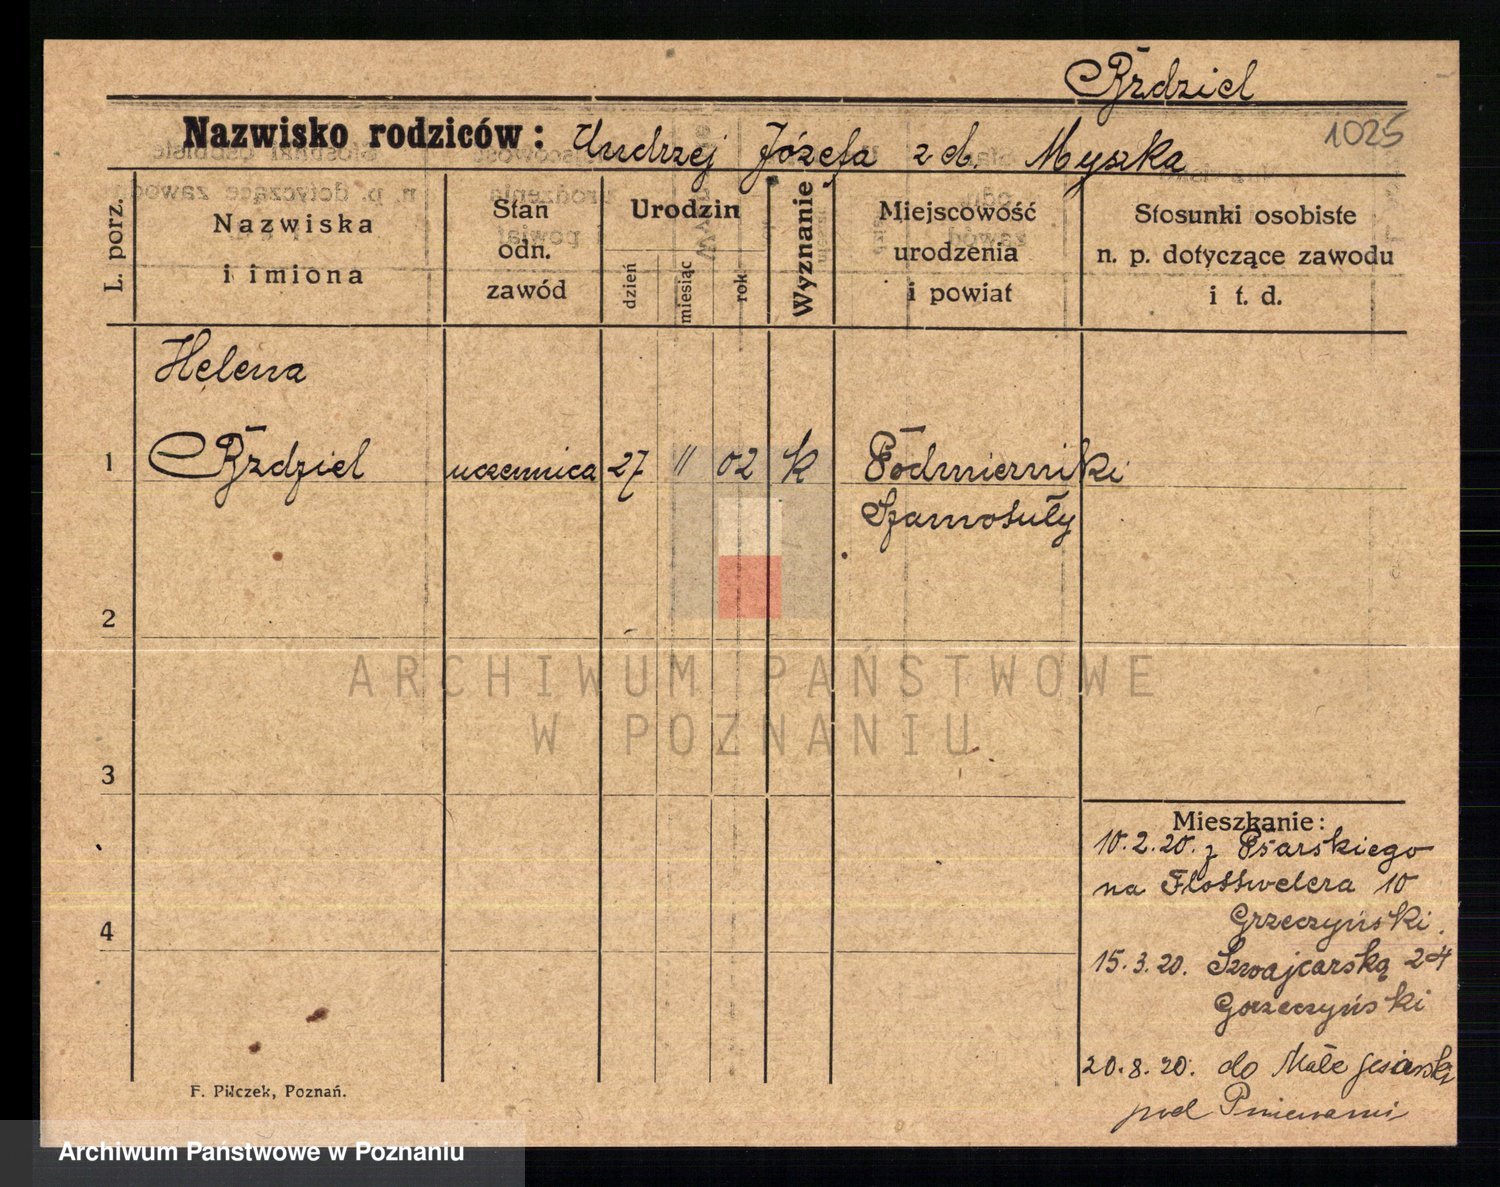 Bździel
Nazwisko rodziców: Andrzej Józefa z d. Myszka
1025
L. porz.
Nazwiska
i imiona
Stan
odn.
zawód
Urodzin
dzień
miesiąc
rok
Wyznanie
Miejscowość
urodzenia
i powiat
Stosunki osobiste
n. p. dotyczące zawodu
i t. d.
Helena
1 Bździel uczennica 27 11 02 k Podmierniki
Szamotuły
2
3
4
Mieszkanie:
10.2.20. z Psarskiego
na Flottwelera 10
Grzeczyński.
15.3.20. Szwajcarską 24
Gorzeczyński
20.8.20. do Małe
pod Pniewami
F. Pilczek, Poznań.
ARCHIWUM PAŃSTWOWE
W POZNANIU
Archiwum Państwowe w Poznaniu